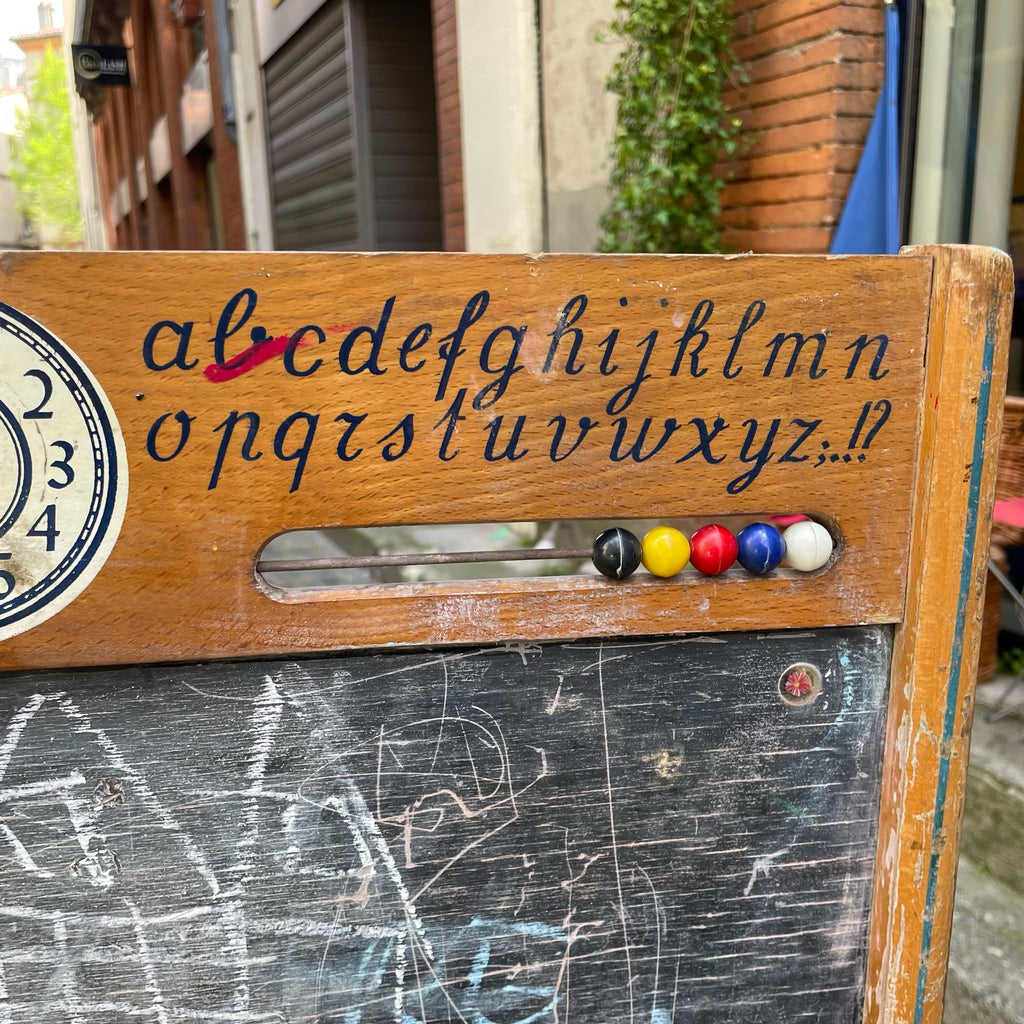 abcdefghijklmn
opqrstuvwxyz;..!?
2
3
4
5